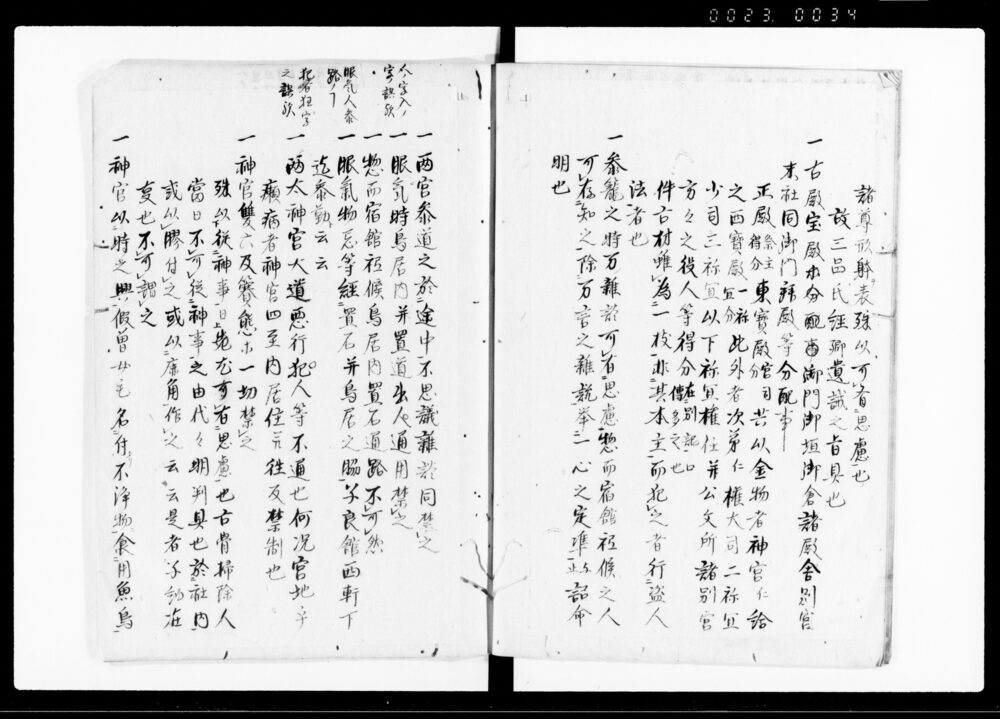 0023. 0034
諸尊形躰表殊以可有思慮也
故三品氏経卿遺誡之旨具也
一古殿宝殿木分配
御門御垣御倉諸殿舎別宮
末社同御門拝殿等分配事
正殿祭主得分東寳殿宮司分共以金物者神宮仁給
之西寳殿一祢宜分此外者次第仁権大司二祢宜
少司三祢宜以下祢宜権任并公文所諸別宮
方々之役人等得分在別記
件古材雖為一枝非其本主而犯之者行盗人
法者也
一参籠之時万雑談可有思慮惣而宿館祗候之人
可存知之除万言之雑説挙一心之定準
明也
一両宮参道之於途中不思議雑談同禁之
一服氣時鳥居内并置道出人通用禁之
一惣而宿館祗候鳥居内置石道路不可然
一服氣物忌等経置石并鳥居之脇子良館西軒下
迄参勤云云
一両太神宮大道悪行犯人等不通也何况宮地乎
癩病者神宮四至内居住并往反禁制也
一神官雙六及賽態等一切禁之
殊以従神事日尤可有思慮也古骨掃除人
當日不可従神事之由代々明判具也於社内
或以膠付之或以鹿角作之云云是者
更也不可謂之
一神官以時之興假曽女毛名付不浄物食用魚鳥
人字入ノ
字誤歟
服氣人参
路ノ
犯者狂字
之誤歟